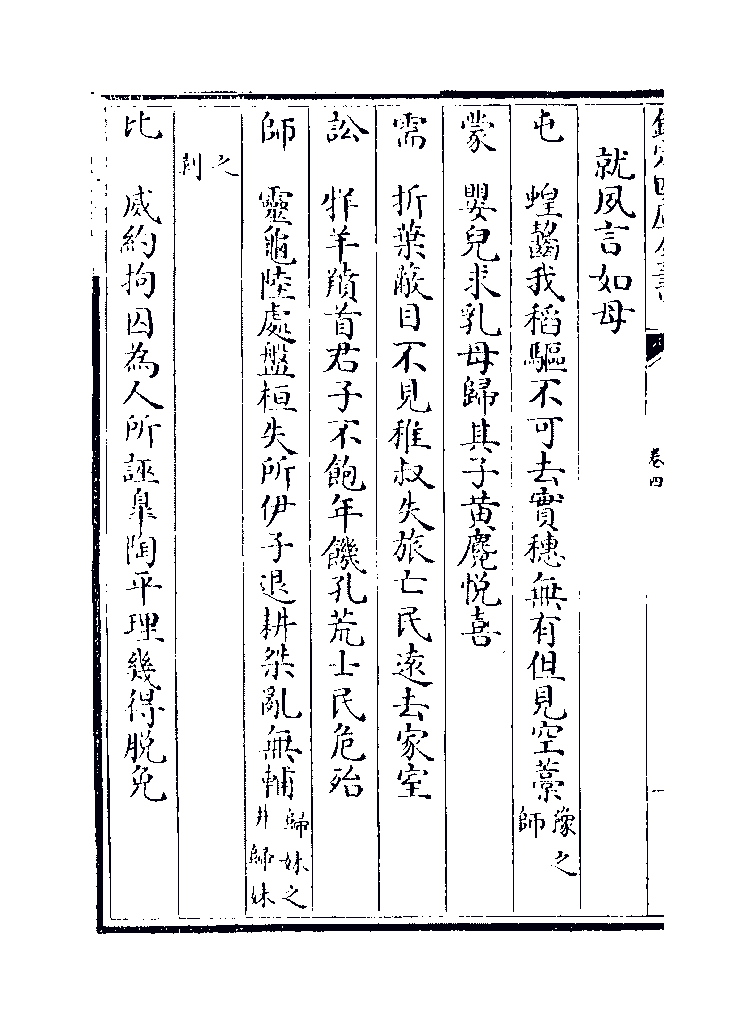 欽定四庫全書 卷四
就夙言如母
屯 蝗齧我稻驅不可去實穗無有但見空藁豫之師
蒙 嬰兒求乳母歸其子黄麑悦喜
需 折葉蔽目不見稚叔失旅亡民遠去家室
訟 牂羊羵首君子不飽年饑孔荒士民危殆
師 靈龜陸處盤桓失所伊子退耕桀亂無輔歸妹之井歸妹
之剝
比 威約拘囚為人所誣臯陶平理幾得脱免